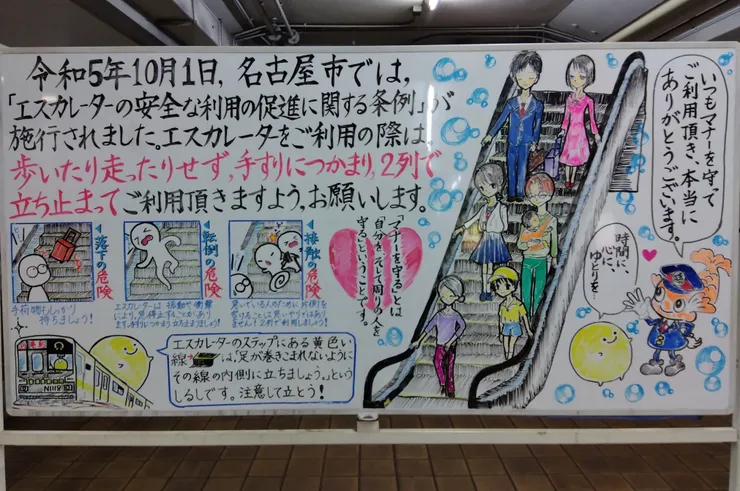 令和5年10月1日，名古屋市では，
「エスカレーターの安全な利用の促進に関する条例」が
施行されました。エスカレータをご利用の際は，
歩いたり走ったりせず，手すりにつかまり，2列で
立ち止まってご利用頂きますよう，お願いします。
◀落下の危険
手荷物もしっかり
持ちましょう！
◀転倒の危険
エスカレーターは、振動や衝撃
により、急停止することがあり
ます。手すりにつかまり立ち止まりましょう！
◀接触の危険
急いでいる人のために片側を
空けることは思いやりではあり
ません！2列で利用しましょう！
「マナーを守る」とは
自分を、そして周りの人を
守るということです。
エスカレーターのステップにある黄色い
線は、「足が巻きこまれないように
その線の内側に立ちましょう。」という
しるしです。注意して立とう！
いつもマナーを守って
ご利用頂き、本当に
ありがとうございます。
時間に、
心に、
ゆとりを…